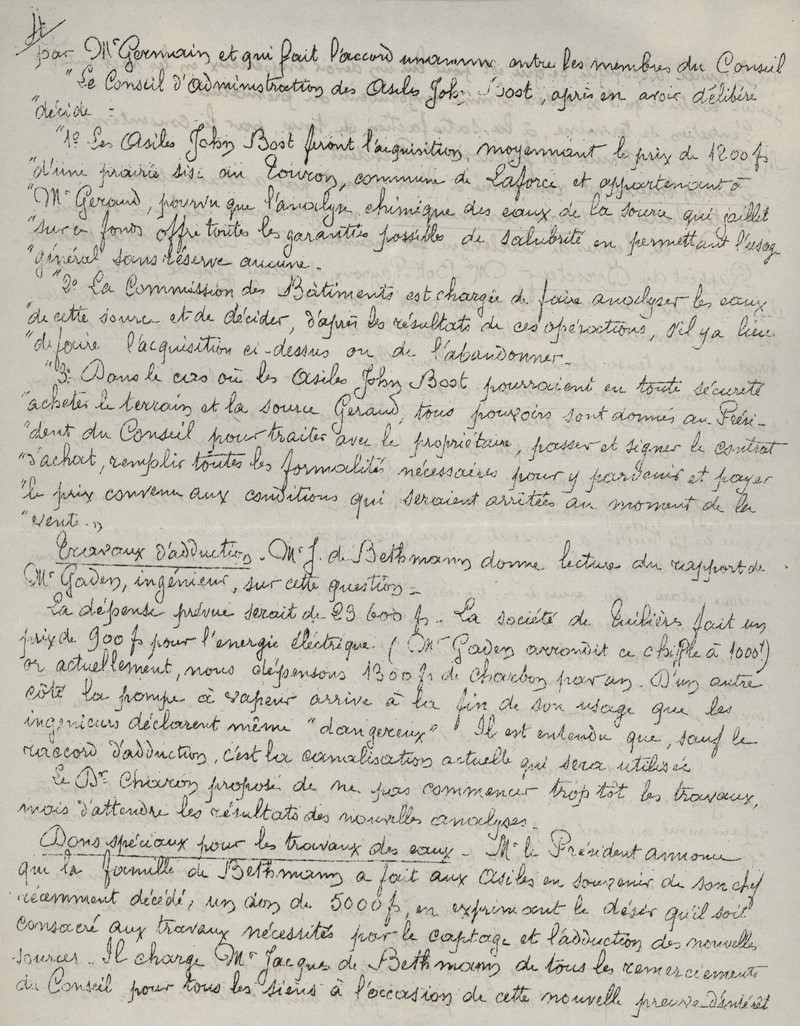 4
par Mr Germain et qui fait l'accord unanime entre les membres du Conseil
"Le Conseil d'administration des Asiles John Bost, après en avoir délibéré
"décide :
"1º Les Asiles John Bost feront l'acquisition, moyennant le prix de 1200 fs
"d'une prairie sise au Touron, commune de Laforce et appartenant à
"Mr Geraud, pourvu que l'analyse chimique des eaux de la source qui jaillit
"sur ce fonds offre toutes les garanties possibles de salubrité en permettant l'usage
"général sans réserve aucune.
"2º La Commission des Bâtiments est chargée de faire analyser les eaux
"de cette source et de décider, d'après les résultats de ces opérations, s'il y a lieu
"de faire l'acquisition ci-dessus ou de l'abandonner.
"3º Dans le cas où les Asiles John Bost pourraient en toute sécurité
"acheter le terrain et la source Geraud, tous pouvoirs sont donnés au Prési-
"dent du Conseil pour traiter avec le propriétaire, passer et signer le contrat
"d'achat, remplir toutes les formalités nécessaires pour y parvenir et payer
"le prix convenu aux conditions qui seraient arrêtées au moment de la
"vente."
Travaux d'adduction. Mr J. de Bethmann donne lecture du rapport de
Mr Gaden, ingénieur, sur cette question =
La dépense prévue serait de 23 600 fs. La société de Tuilières fait un
prix de 900 fs pour l'energie électrique. (Mr Gaden arrondit ce chiffre à 1000f)
or actuellement, nous dépensons 1300 fs de charbon par an. D'un autre
côté la pompe à vapeur arrive à la fin de son usage que les
ingenieurs déclarent même "dangereux" Il est entendu que, sauf le
raccord d'adduction, c'est la canalisation actuelle qui sera utilisée
Le Dr Charon propose de ne pas commencer trop tôt les travaux,
mais d'attendre les résultats des nouvelles analyses.
Dons spéciaux pour les travaux des eaux. Mr le Président annonce
que la famille de Bethmann a fait aux Asiles en souvenir de son chef
récemment décédé, un don de 5000 fs, en exprimant le désir qu'il soit
consacré aux travaux nécessités par le captage et l'adduction des nouvelles
sources. Il charge Mr Jacques de Bethmann de tous les remerciements
du Conseil pour tous les siens à l'occasion de cette nouvelle preuve d'intérêt